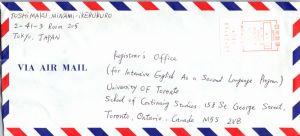 TOSHIMAKU, MINAMI-IKEBUKURO
2-41-3 Room 205
TOKYO, JAPAN
VIA AIR MAIL
Registrar's Office
(for Intensive English As a Second Language Program)
University OF Toronto
School of Continuing Studies 158 St. George Street,
Toronto, Ontario. Canada M5S 2V8